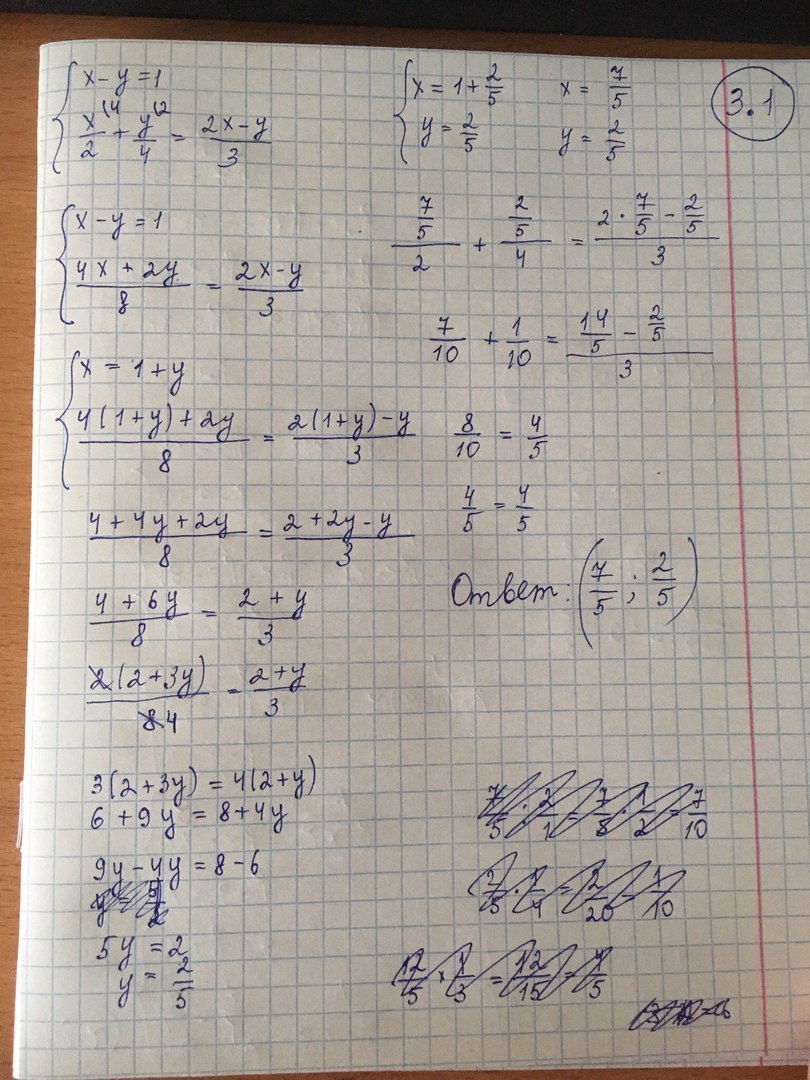 3.1
{ x - y = 1
x/2 (4 + y/4 (2 = (2x - y)/3
{ x - y = 1
(4x + 2y)/8 = (2x - y)/3
{ x = 1 + y
(4(1 + y) + 2y)/8 = (2(1 + y) - y)/3
(4 + 4y + 2y)/8 = (2 + 2y - y)/3
(4 + 6y)/8 = (2 + y)/3
2(2 + 3y)/8 4 = (2 + y)/3
3(2 + 3y) = 4(2 + y)
6 + 9y = 8 + 4y
9y - 4y = 8 - 6
5y = 2
y = 2/5
{ x = 1 + 2/5 x = 7/5
y = 2/5 y = 2/5
(7/5)/2 + (2/5)/4 = (2 · 7/5 - 2/5)/3
7/10 + 1/10 = (14/5 - 2/5)/3
8/10 = 4/5
4/5 = 4/5
Ответ: (7/5 ; 2/5)